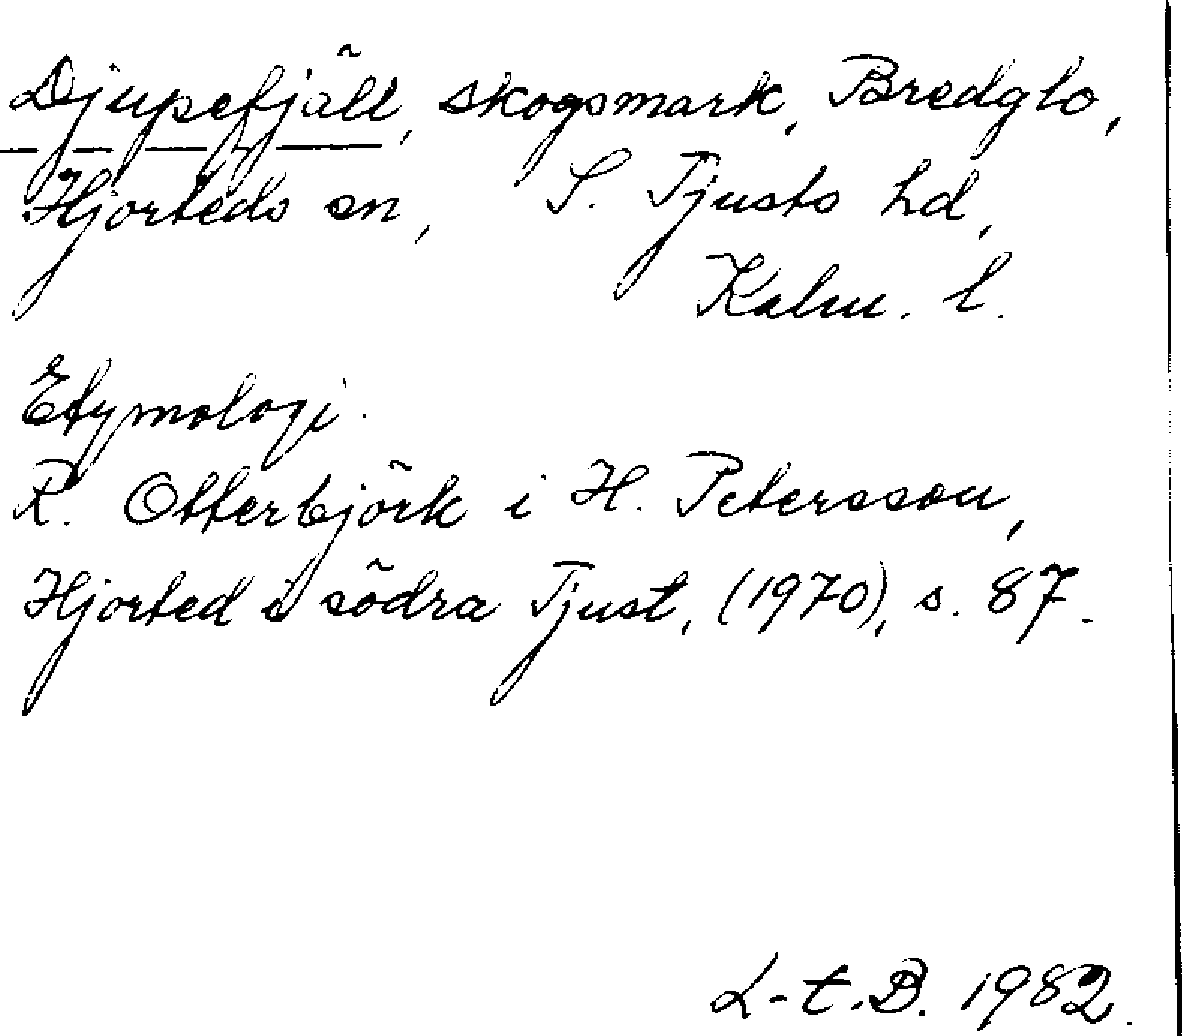 Djupefjäll, skogsmark, Bredglo,
Hjorteds sn, S. Tjusts hd,
Kalm. l.
Etymologi.
R. Otterbjörk i H. Petersson,
Hjorted i södra Tjust, (1970), s. 87.
L-t.B. 1982.